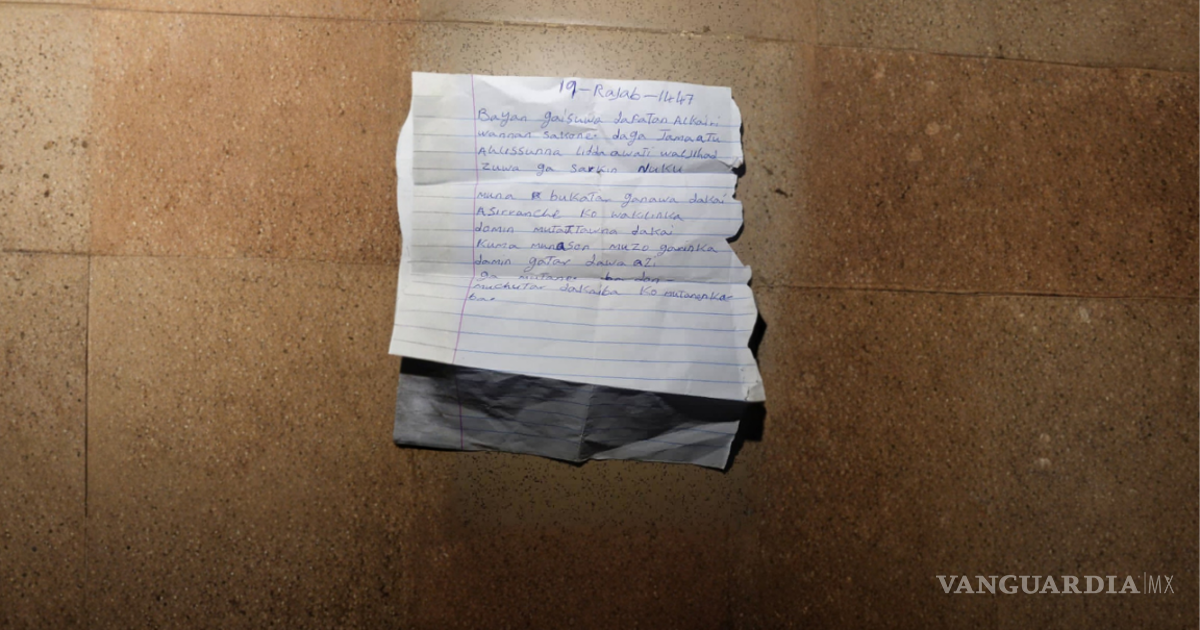 19-Rajab-1447
Bayan gaisuwa dafatan Alkairi
wannan sakone daga Jamaatu
Ahlissunna lidda awati waljihad
Zuwa ga sarkin Nuku
muna bukatar ganawa dakai
Asirranche ko wakilinka
domin mutattauna dakai
Kuma munason muzo garinka
damin gatar dawa'azi
ga mutane
muchutar dakaiba ko mutanenka
bae
VANGUARDIA|MX